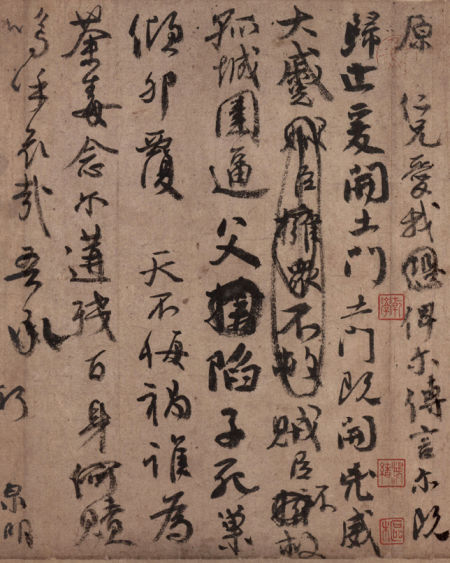 原 仁兄愛我俾尔傳言尔既
歸止爰開土門土門既開兇威
大蹙賊臣擁衆不救賊臣不救
孤城圍逼父陷子死巢
傾卵覆 天不悔禍誰為
荼毒念尔遘殘百身何贖
嗚呼哀哉吾承
泉明